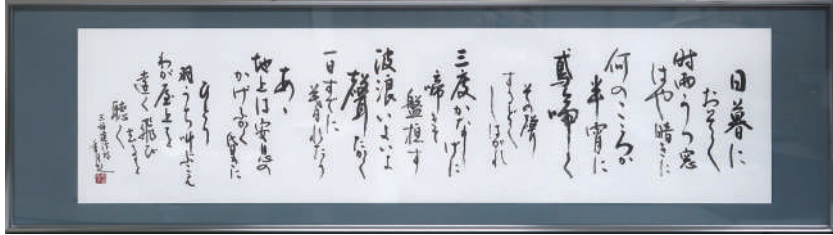 日暮に
おそく
時雨うつ窓
はや暗きに
何のこころか
半宵に
鳶啼く
その聲
するどく
しはがれ
三度かなしげに
啼きて
盤桓す
波浪いよいよ
聲たかく
一日すでに
暮れたり
あゝ
地上は安息の
かげふかく昏きに
ひとり
羽うち叫ぶこゑ
わが屋上を
遠く飛び
去るを
聴く
三好達治詩